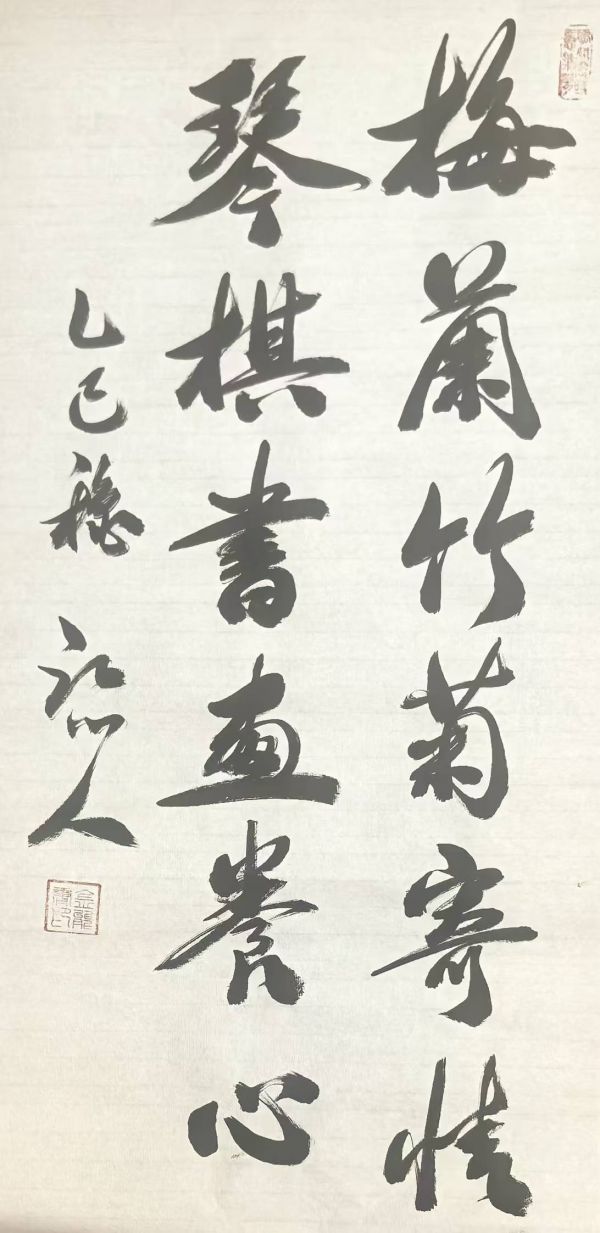 梅蘭竹菊寄情
琴棋書畫養心
乙巳穐 沁人